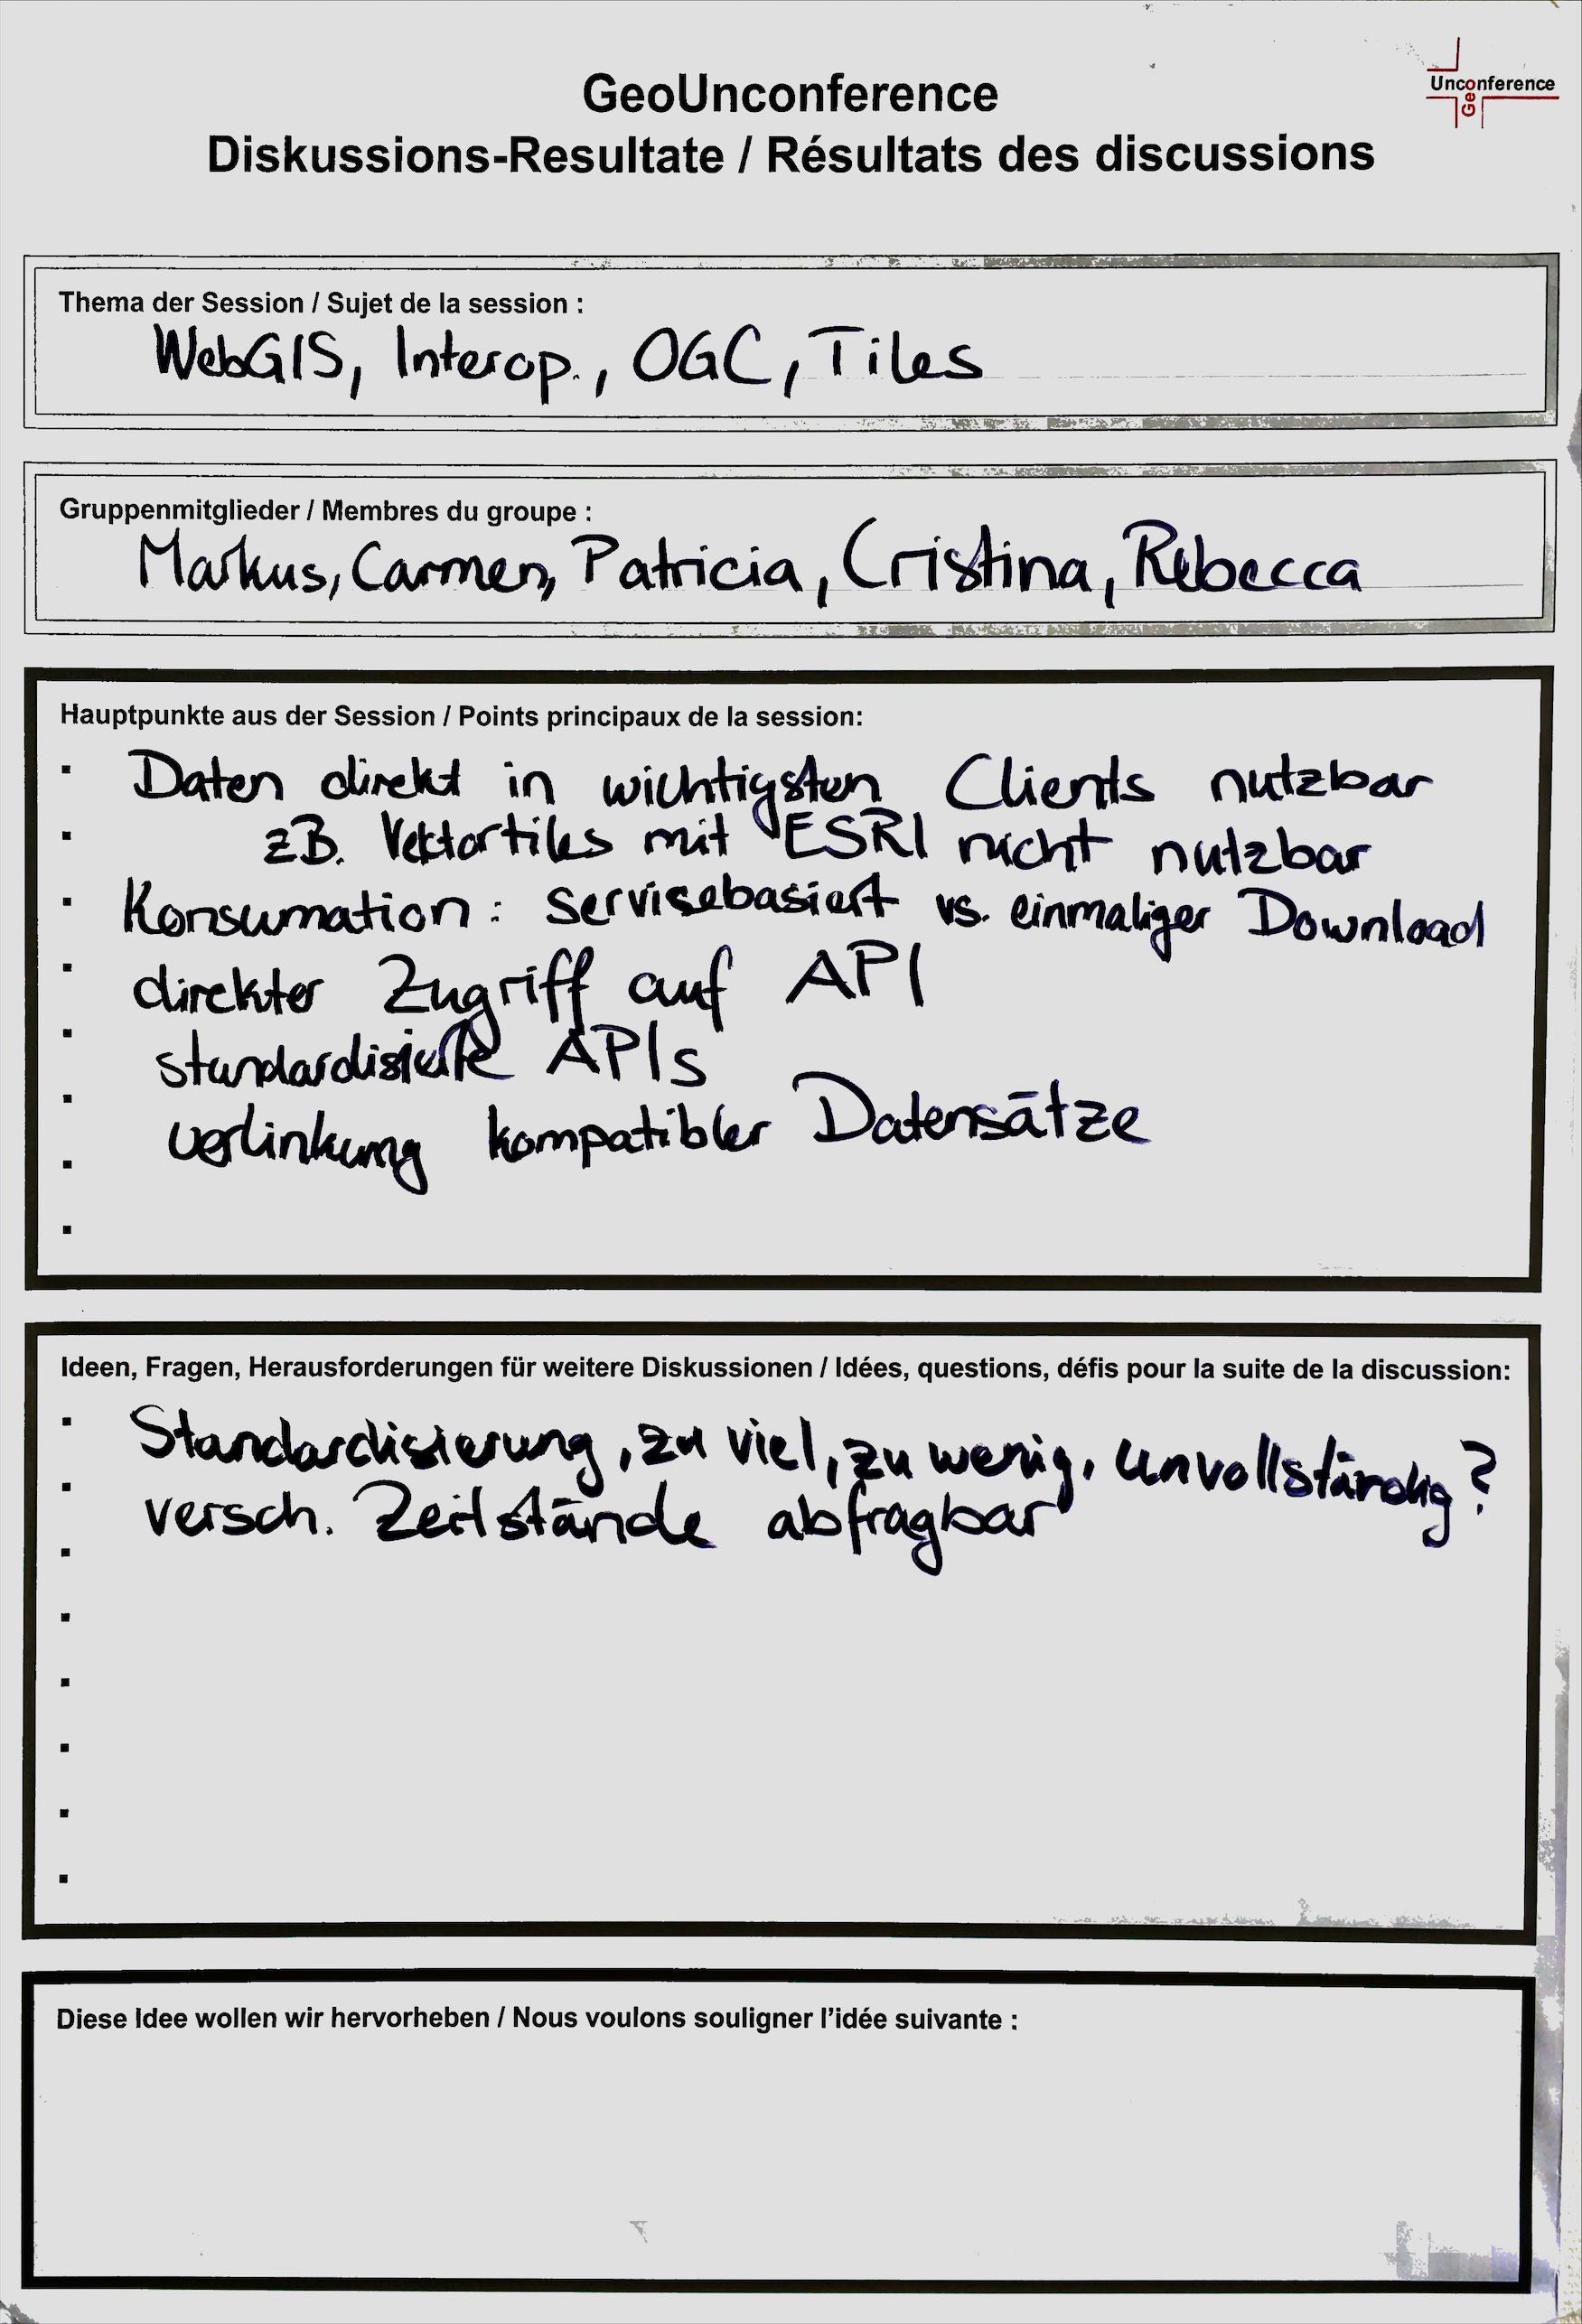 Unconference
Geo
GeoUnconference
Diskussions-Resultate / Résultats des discussions
Thema der Session / Sujet de la session :
WebGIS, Interop., OGC, Tiles
Gruppenmitglieder / Membres du groupe :
Markus, Carmen, Patricia, Cristina, Rebecca
Hauptpunkte aus der Session / Points principaux de la session:
Daten direkt in wichtigsten Clients nutzbar
zB. Vektortiles mit ESRI nicht nutzbar
Konsumation : servisebasiert vs. einmaliger Download
direkter Zugriff auf API
standardisierte APIs
verlinkung kompatibler Datensätze
Ideen, Fragen, Herausforderungen für weitere Diskussionen / Idées, questions, défis pour la suite de la discussion:
Standardisierung, zu viel, zu wenig, unvollständig?
versch. Zeitstände abfragbar
Diese Idee wollen wir hervorheben / Nous voulons souligner l'idée suivante :